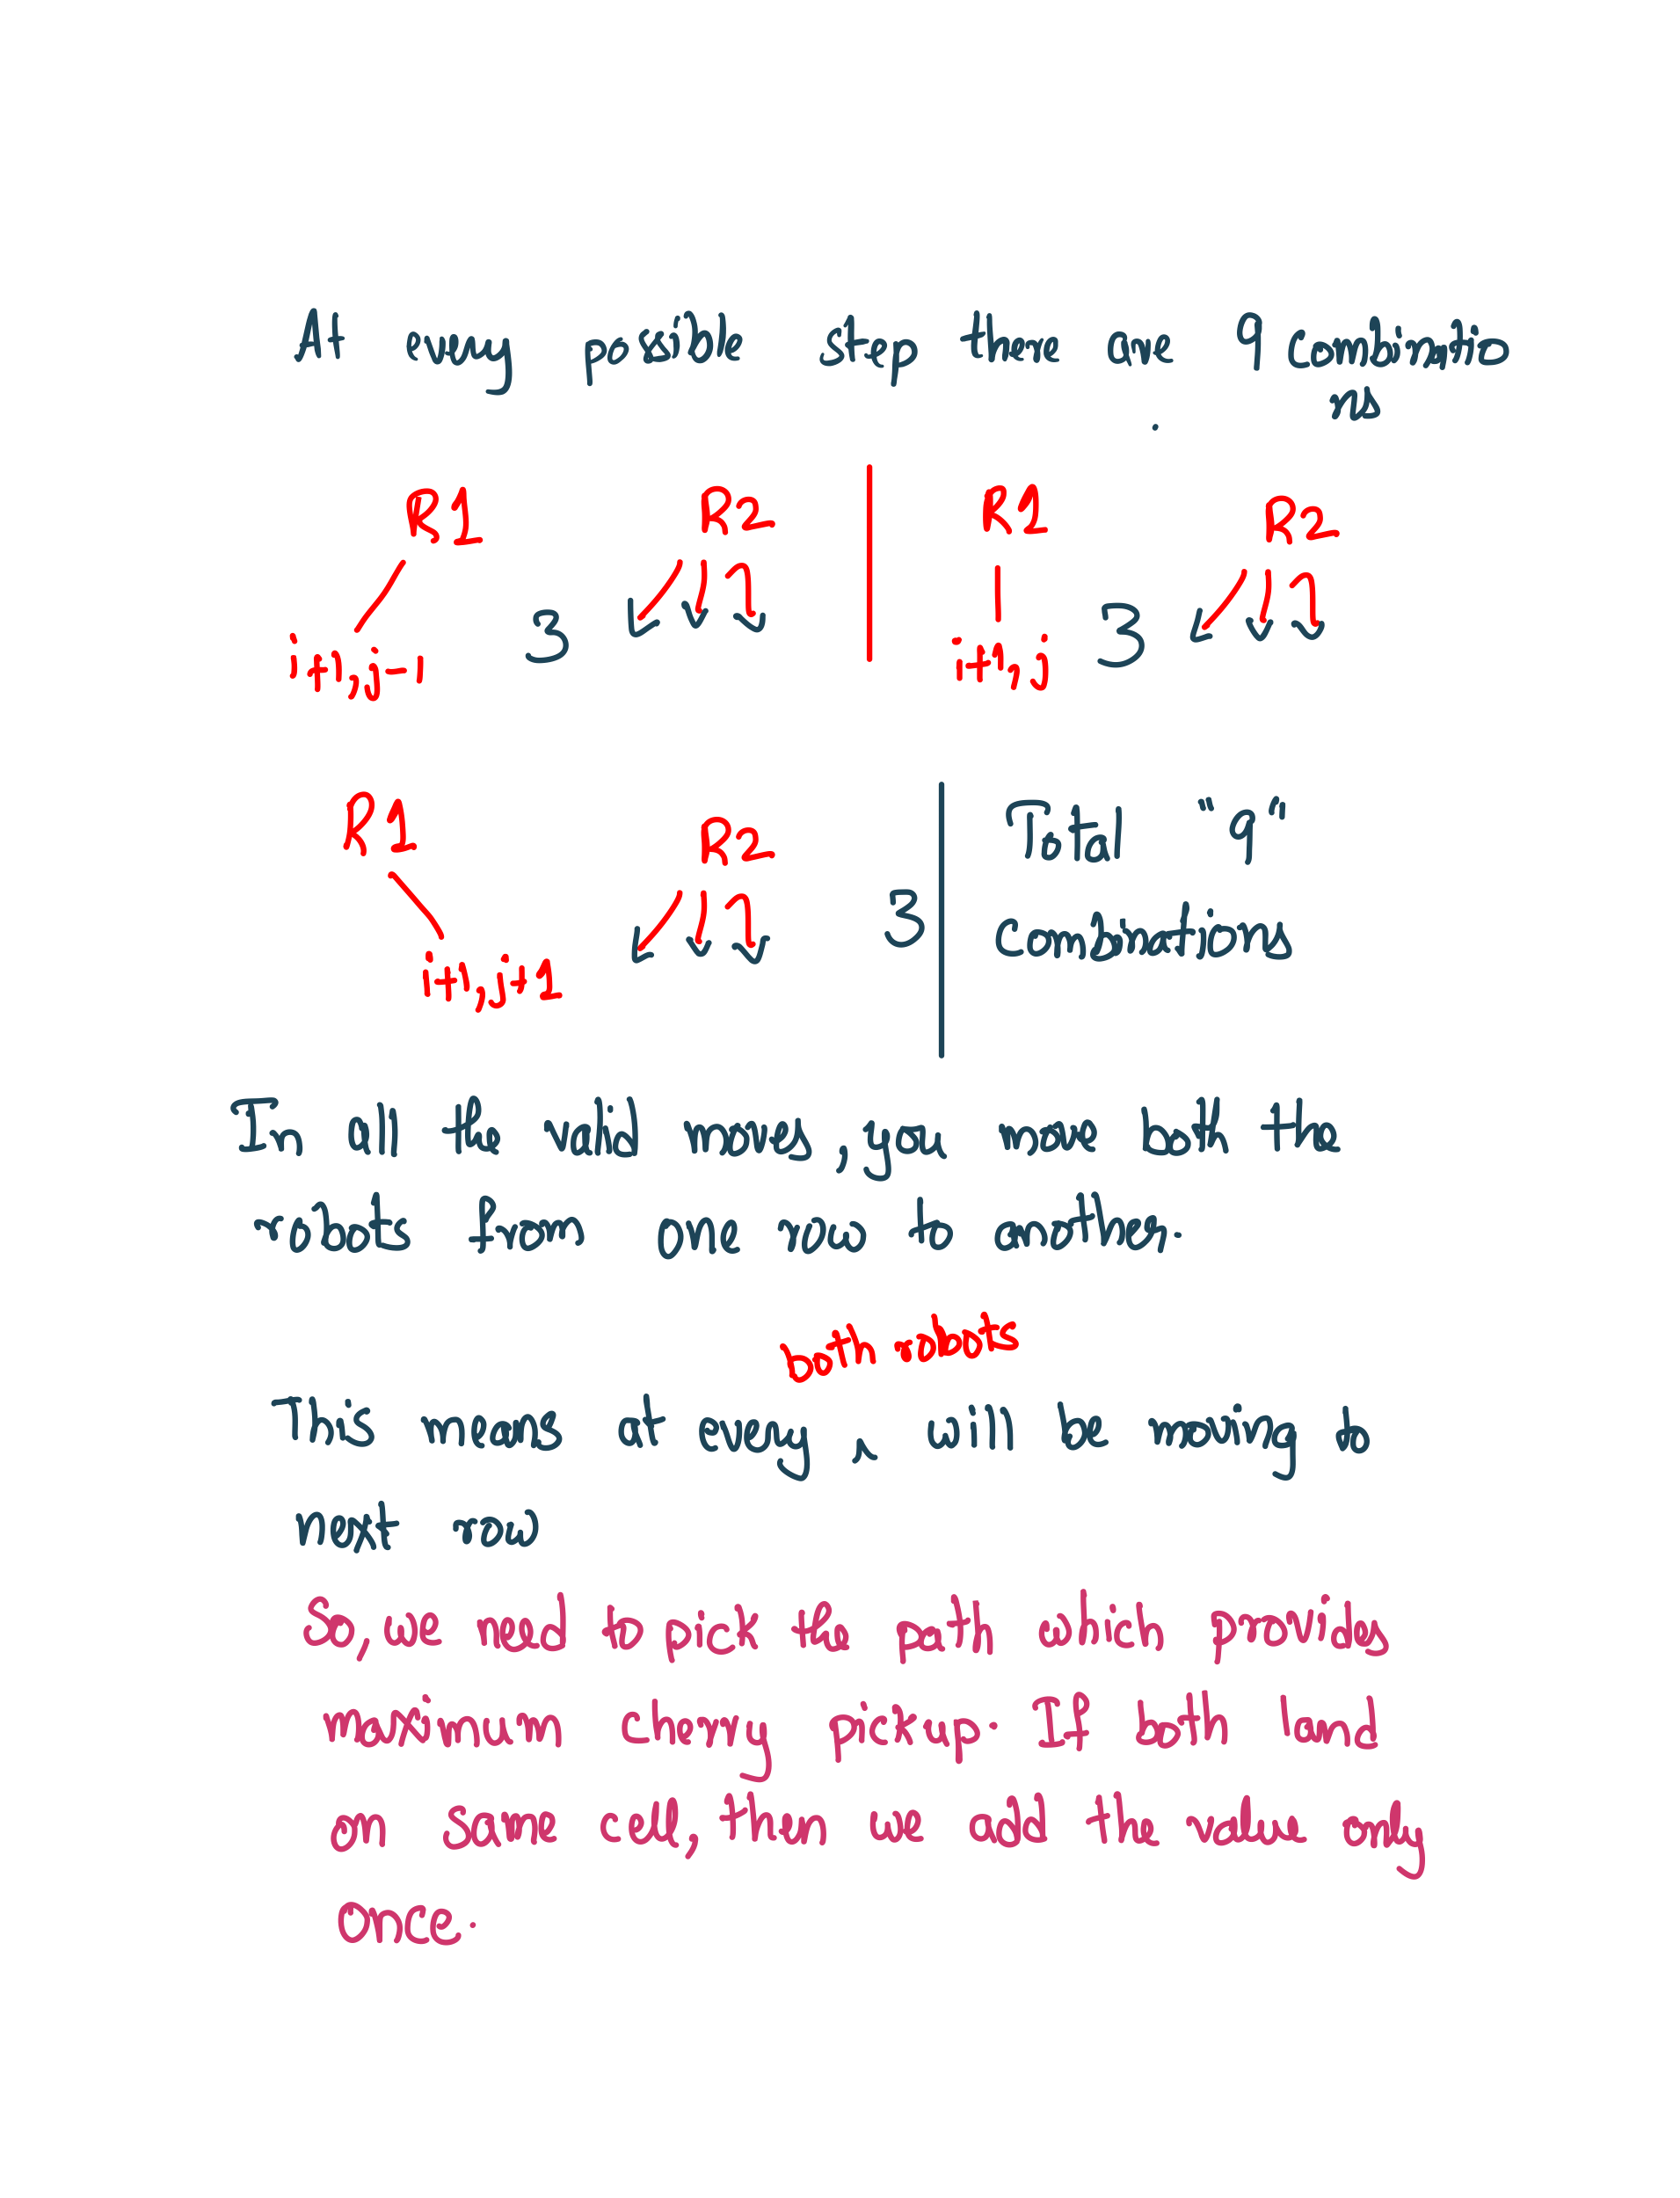 At every possible step there are 9 combinatio
ns
R1 R2 R1 R2
i+1,j-1 3 i+1,j 3
R1 R2 Total "9"
3 combinations
i+1,j+1
In all the valid moves, you move both the
robots from one row to another.
both robots
This means at every will be moving to
next row
So, we need to pick the path which provides
maximum cherry pickup. If both land
on same cell, then we add the value only
once.